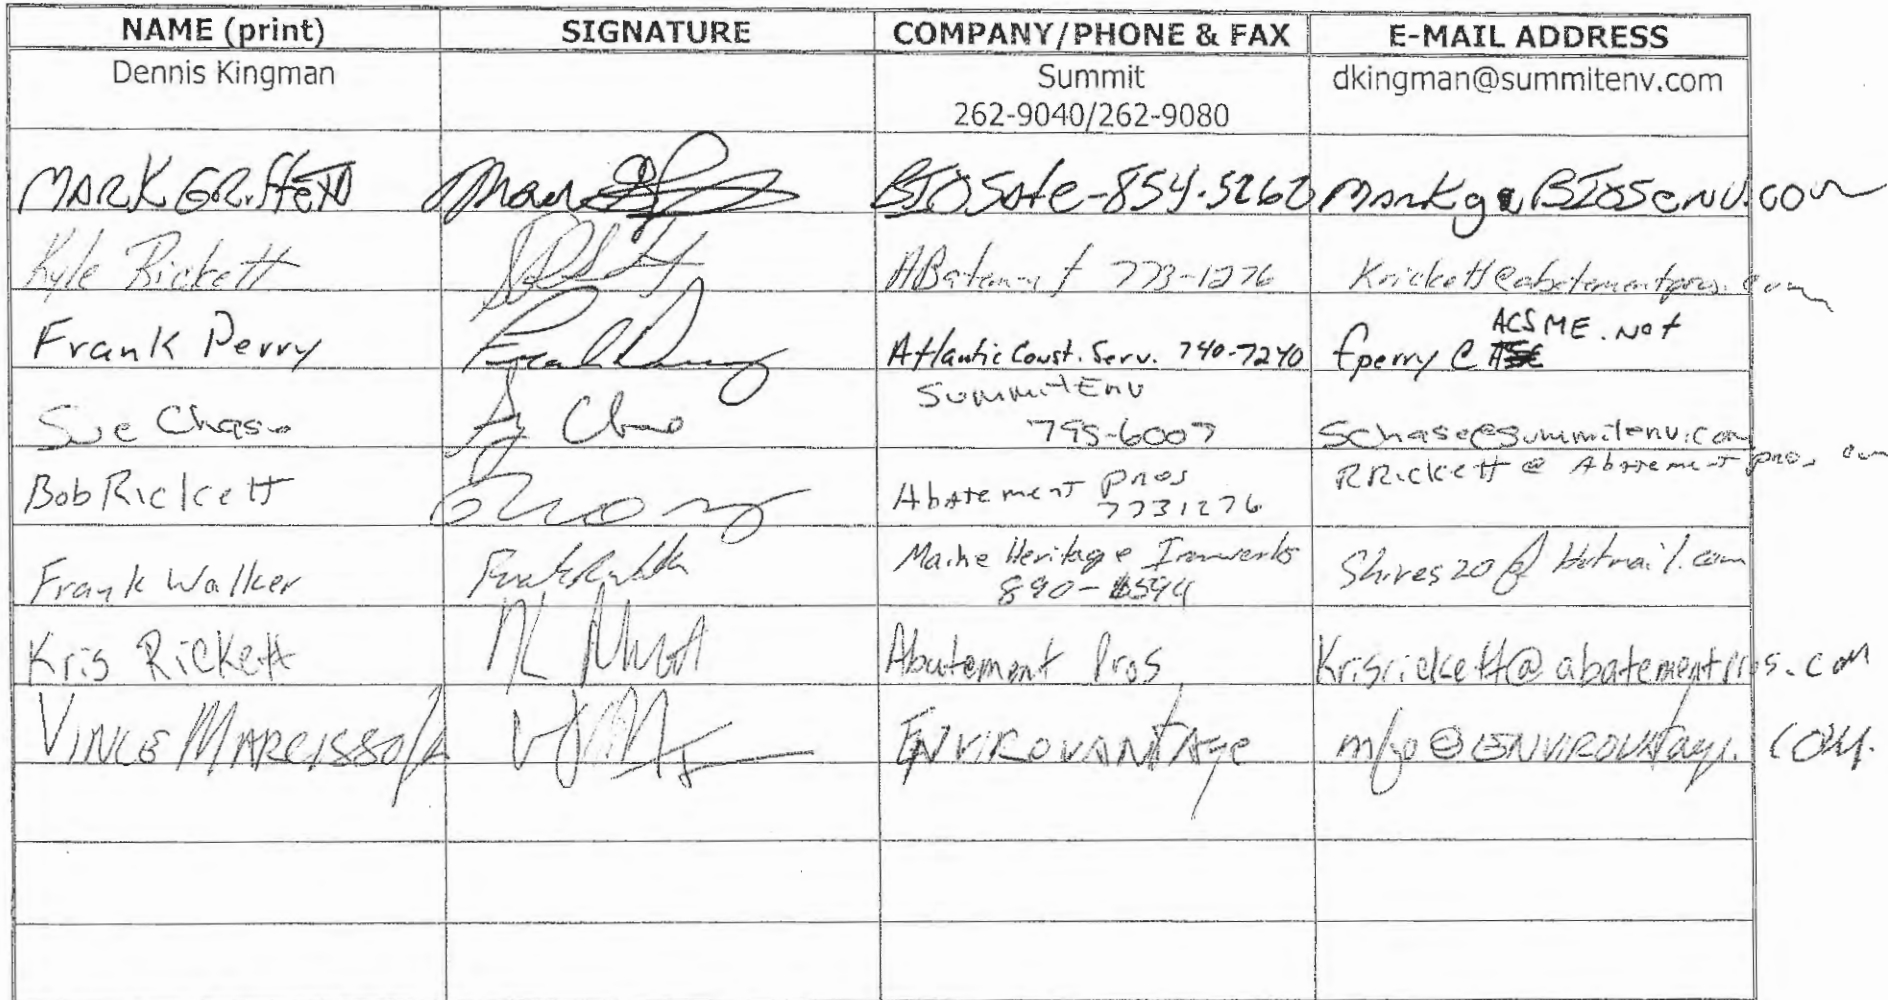 NAME (print) SIGNATURE COMPANY/PHONE & FAX E-MAIL ADDRESS
Dennis Kingman Summit dkingman@summitenv.com
262-9040/262-9080
MARK GRiffeth BIOSafe-854-5262 markg@BIOSenv.com
Kyle Rickett ABatement 773-1276 Krickett@abatementpros.com
Frank Perry Atlantic Const. Serv. 740-7240 fperry@ ACSME.Net
Sue Chase SummitEnv
795-6007 Schase@summitenv.com
Bob Rickett Abatement Pros RRickett@Abatementpros.com
7731276
Frank Walker Maine Heritage Ironworks Shires20@hotmail.com
890-6594
Kris Rickett Abatement Pros Krisrickett@abatementpros.com
VINCE ENVIROVANTAge